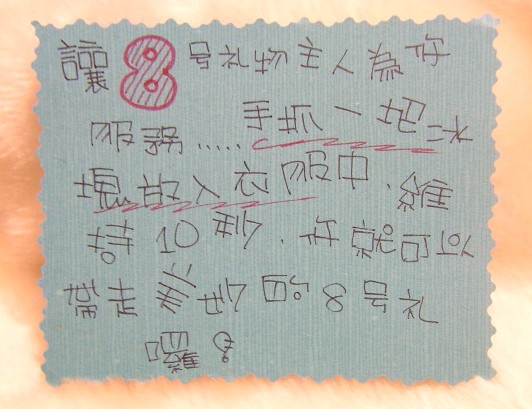 讓8号礼物主人為你
服務.....手抓一把冰
塊放入衣服中,維
持10秒,你就可以
帶走美妙的8号礼
囉